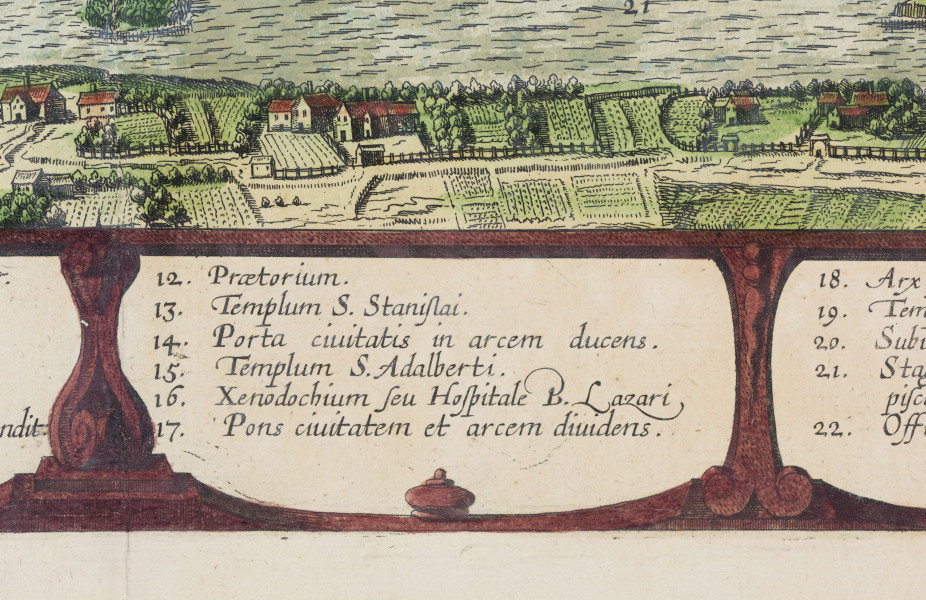 21
12. Prætorium.
13. Templum S. Staniſlai.
14. Porta ciuitatis in arcem ducens.
15. Templum S. Adalberti.
16. Xenodochium ſeu Hoſpitale B. Lazari,
17. Pons ciuitatem et arcem diuidens.
18. Arx
19.
20.
21.
22.